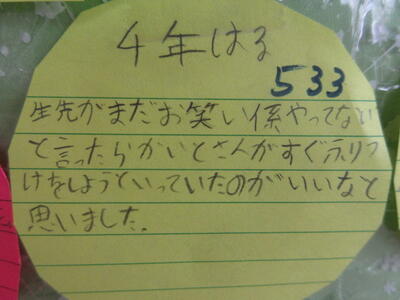 4年はる
533
生先がまだお笑い係やってない
と言ったらかいとさんがすぐふりつ
けをしようといっていたのがいいなと
思いました.